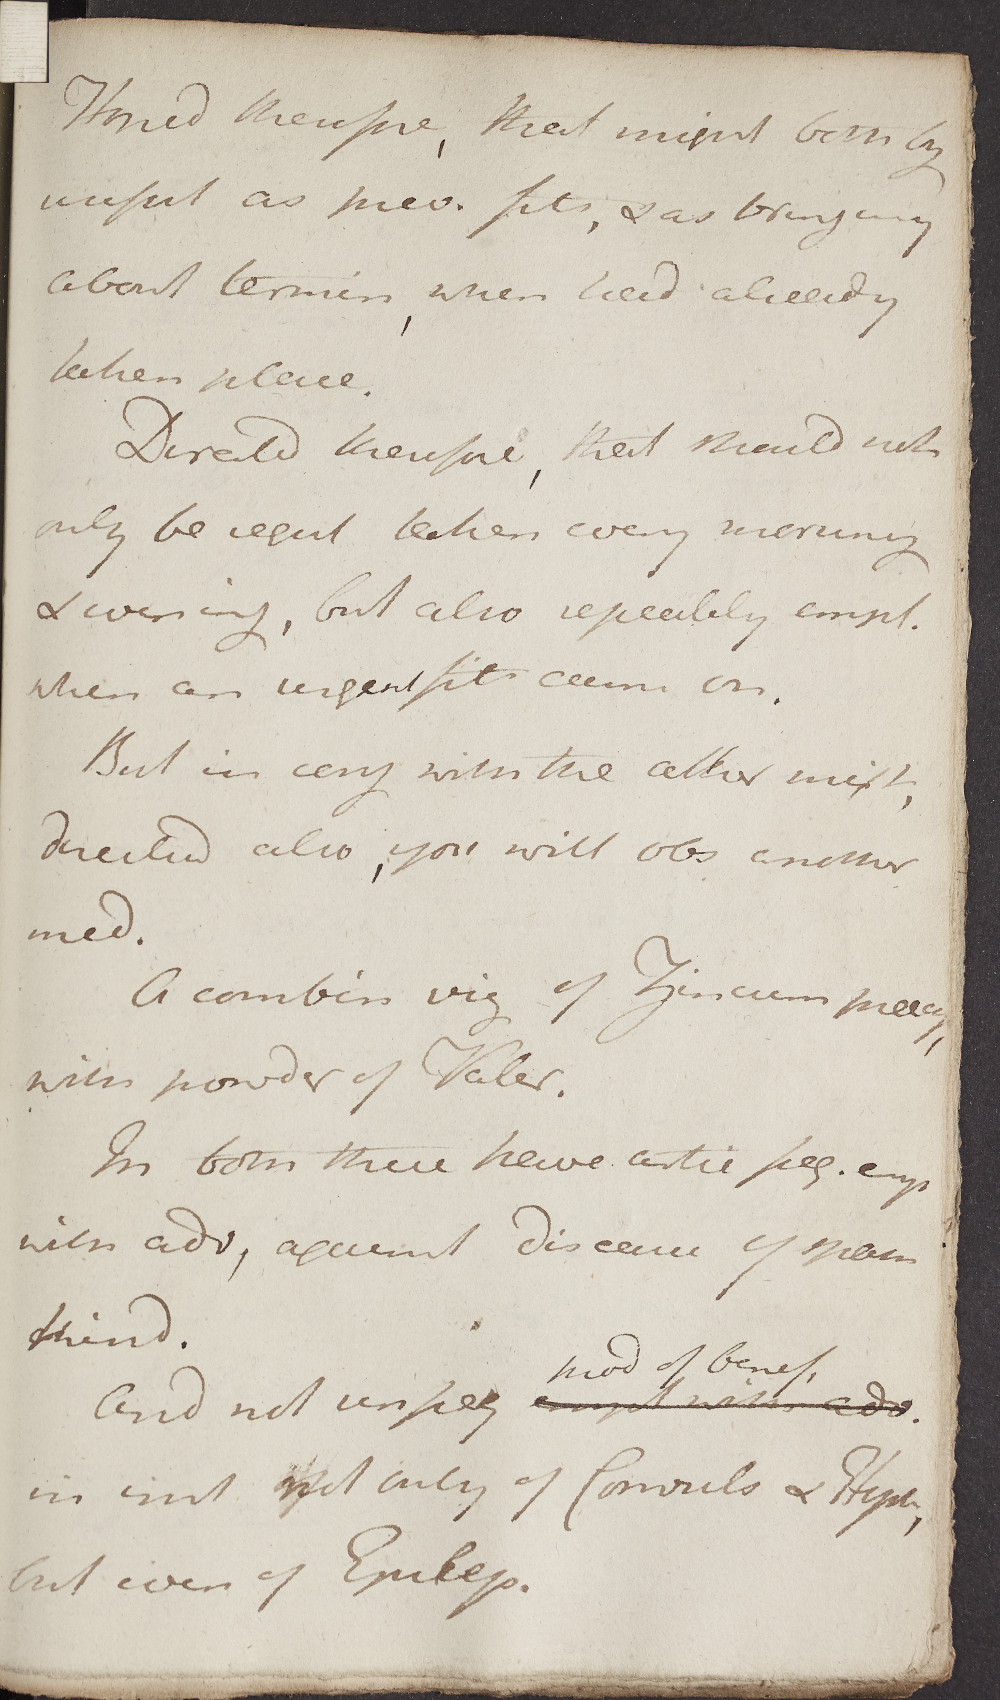 Hoped therefore, that might both by
usefull as prev. fits, & as bringing
about termin, when had already
taken place.
Directed therefore, that should not
only be regul taken every morning
& evening, but also repeatedly empl.
when an urgent fits came on.
But in conj with the æther mixt,
directed also, you will obs another
med.
A combin viz of Zincum præcip,
with powder of Valer.
In both these have artic freq. emp
with adv, against disease of spasm
kind.
And not unfreq mod of benef,
empl with adv.
in inst not only of Convuls & Hyste,
but even of Epilep.